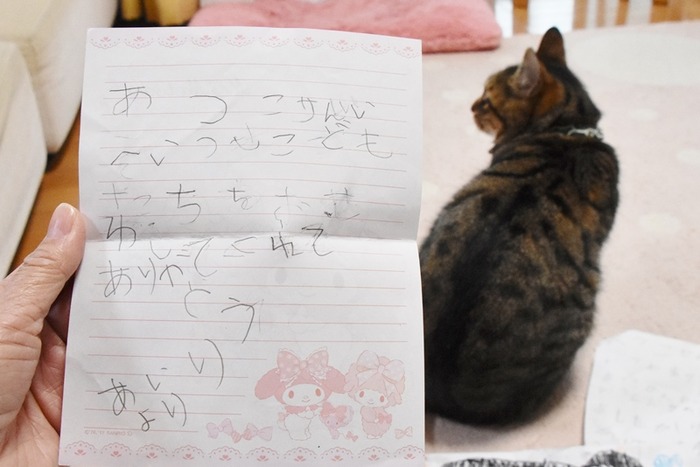 あつこサんい
といつもこども
たっちをおせ
わしてくれて
ありがとう
あいり
より